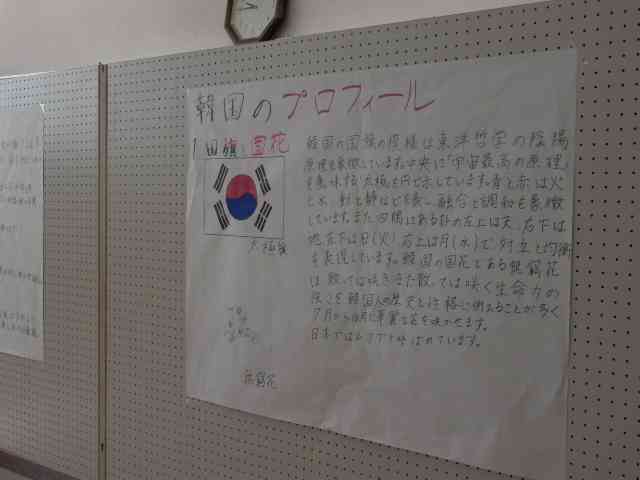 韓国のプロフィール
1 国旗と国花
太極旗
無窮花
韓国の国旗の模様は東洋哲学の陰陽
原理を象徴しています。中央に「宇宙最高の原理」
を意味する太極を円で示しています。青と赤は火
と水、動と静などを表し、融合と調和を象徴
しています。また四隅にある卦の左上は天、右下は
地、左下は日(火)、右上は月(水)で対立と均衡
を表現しています。韓国の国花である無窮花
は散っては咲きまた散っては咲く生命力の
強さを韓国人の歴史と性格に例えることが多く
7月から10月に華麗な花を咲かせます。
日本ではムクゲと呼ばれています。